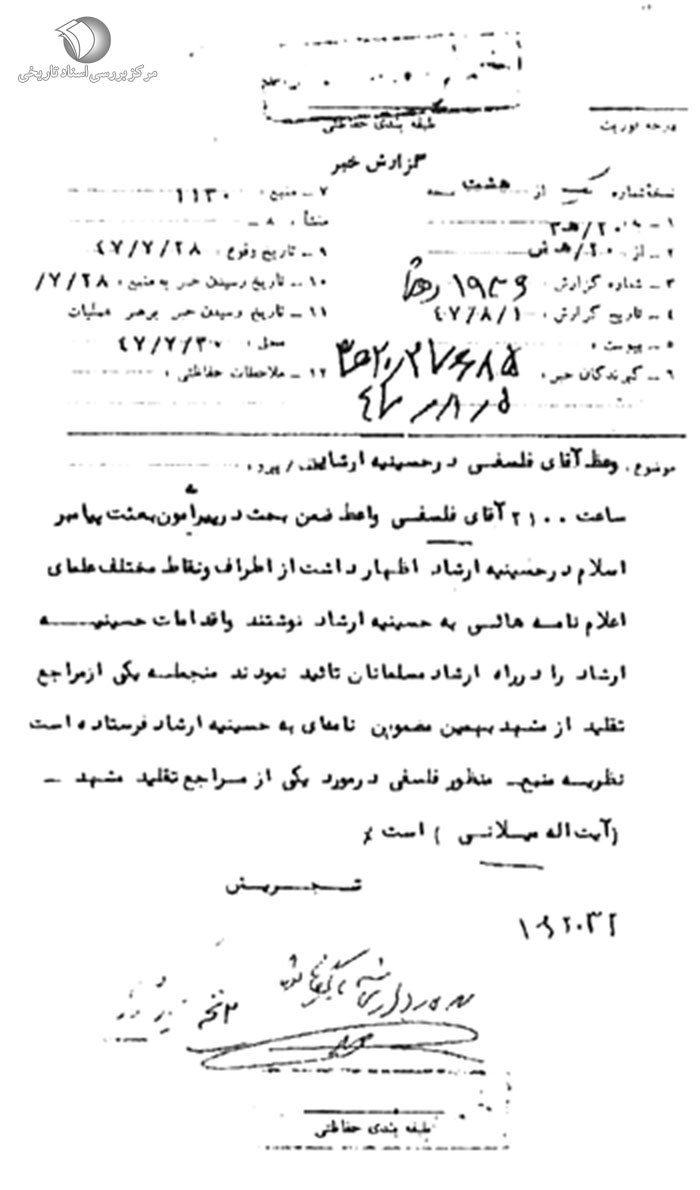 مرکز بررسی اسناد تاریخی
طبقه بندی حفاظتی
درجه فوریت
گزارش خبر
نسخه شماره یک از هشت نسخه
۷ ـ منبع : ۱۱۳۰
۱ ـ ۲۰/ه‍ ۳
منشأ : ۸ ـ
۲ ـ از : ۲۰/ه‍ ش
۹ ـ تاریخ وقوع : ۴۷/۷/۲۸
۳ ـ شماره گزارش : ۱۹۳۶
۱۰ ـ تاریخ رسیدن خبر به منبع : ۷/۲۸/
۴ ـ تاریخ گزارش : ۴۷/۸/۱
۱۱ ـ تاریخ رسیدن خبر برهبر عملیات
۵ ـ پیوست :
محل : ۴۷/۷/۳۰
۶ ـ گیرندگان خبر :
۱۲ ـ ملاحظات حفاظتی :
موضوع : وعظ آقای فلسفی در حسینیه ارشاد عطف / پیرو :
ساعت ۲۱۰۰ آقای فلسفی واعظ ضمن بحث در پیرامون بعثت پیامبر
اسلام در حسینیه ارشاد اظهار داشت از اطراف و نقاط مختلف علمای
اعلام نامه هائی به حسینیه ارشاد نوشتند و اقدامات حسینیه
ارشاد را در راه ارشاد مسلمانان تائید نمودند منجمله یکی از مراجع
تقلید از مشهد بهمین مضمون نامه‌ای به حسینیه ارشاد فرستاده است
نظریه منبع ـ منظور فلسفی در مورد یکی از مراجع تقلید مشهد ـ
(آیت اله میلانی ) است
تجریش
طبقه بندی حفاظتی